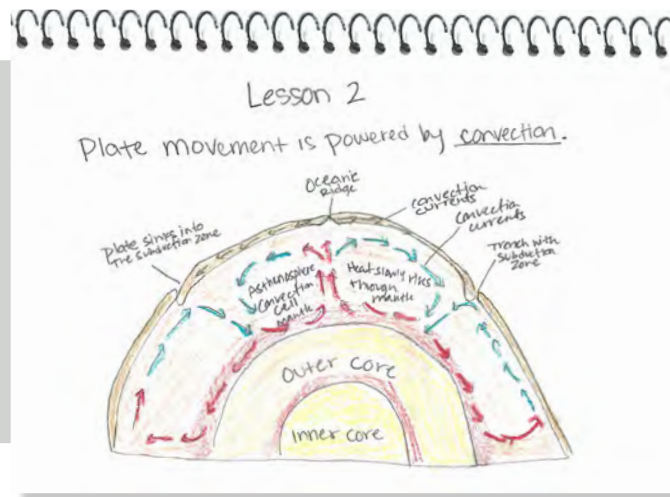 Lesson 2
Plate movement is powered by convection.
Oceanic
Ridge
convection
currents
Convection
currents
Plate sinks into
the subduction zone
Trench with
subduction
zone
Asthenosphere
Convection
cell
mantle
Heat slowly rises
though
mantle
Outer core
Inner core